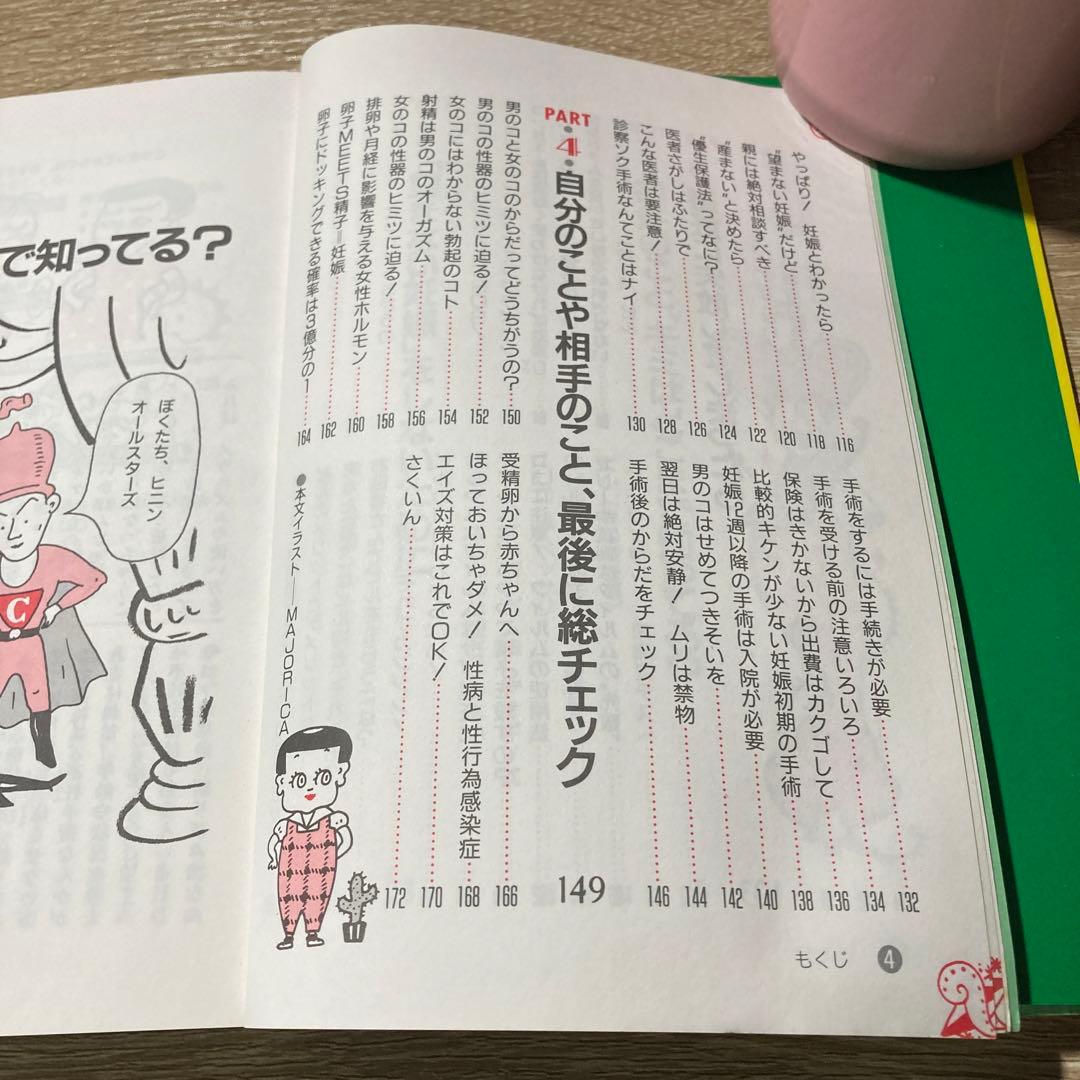 やっぱり! 妊娠とわかったら 116
"望まない妊娠"だけど 118
親には絶対相談すべき 120
"産まない"と決めたら 122
"優生保護法"ってなに? 124
医者さがしはふたりで 126
こんな医者は要注意! 128
診察ソク手術なんてことはナイ 130
手術をするには手続きが必要 132
手術を受ける前の注意いろいろ 134
保険はきかないから出費はカクゴして 136
比較的キケンが少ない妊娠初期の手術 138
妊娠12週以降の手術は入院が必要 140
男のコはせめてつきそいを 142
翌日は絶対安静! ムリは禁物 144
手術後のからだをチェック 146
PART・4・自分のことや相手のこと、最後に総チェック 149
男のコと女のコのからだってどうちがうの? 150
男のコの性器のヒミツに迫る! 152
女のコにはわからない勃起のコト 154
射精は男のコのオーガズム 156
女のコの性器のヒミツに迫る! 158
排卵や月経に影響を与える女性ホルモン 160
卵子MEETS精子=妊娠 162
卵子にドッキングできる確率は3億分の1 164
受精卵から赤ちゃんへ 166
ほっておいちゃダメ! 性病と性行為感染症 168
エイズ対策はこれでOK! 170
さくいん 172
●本文イラスト──MAJORICA
もくじ 4
で知ってる?
ぼくたち、ヒニン
オールスターズ
C